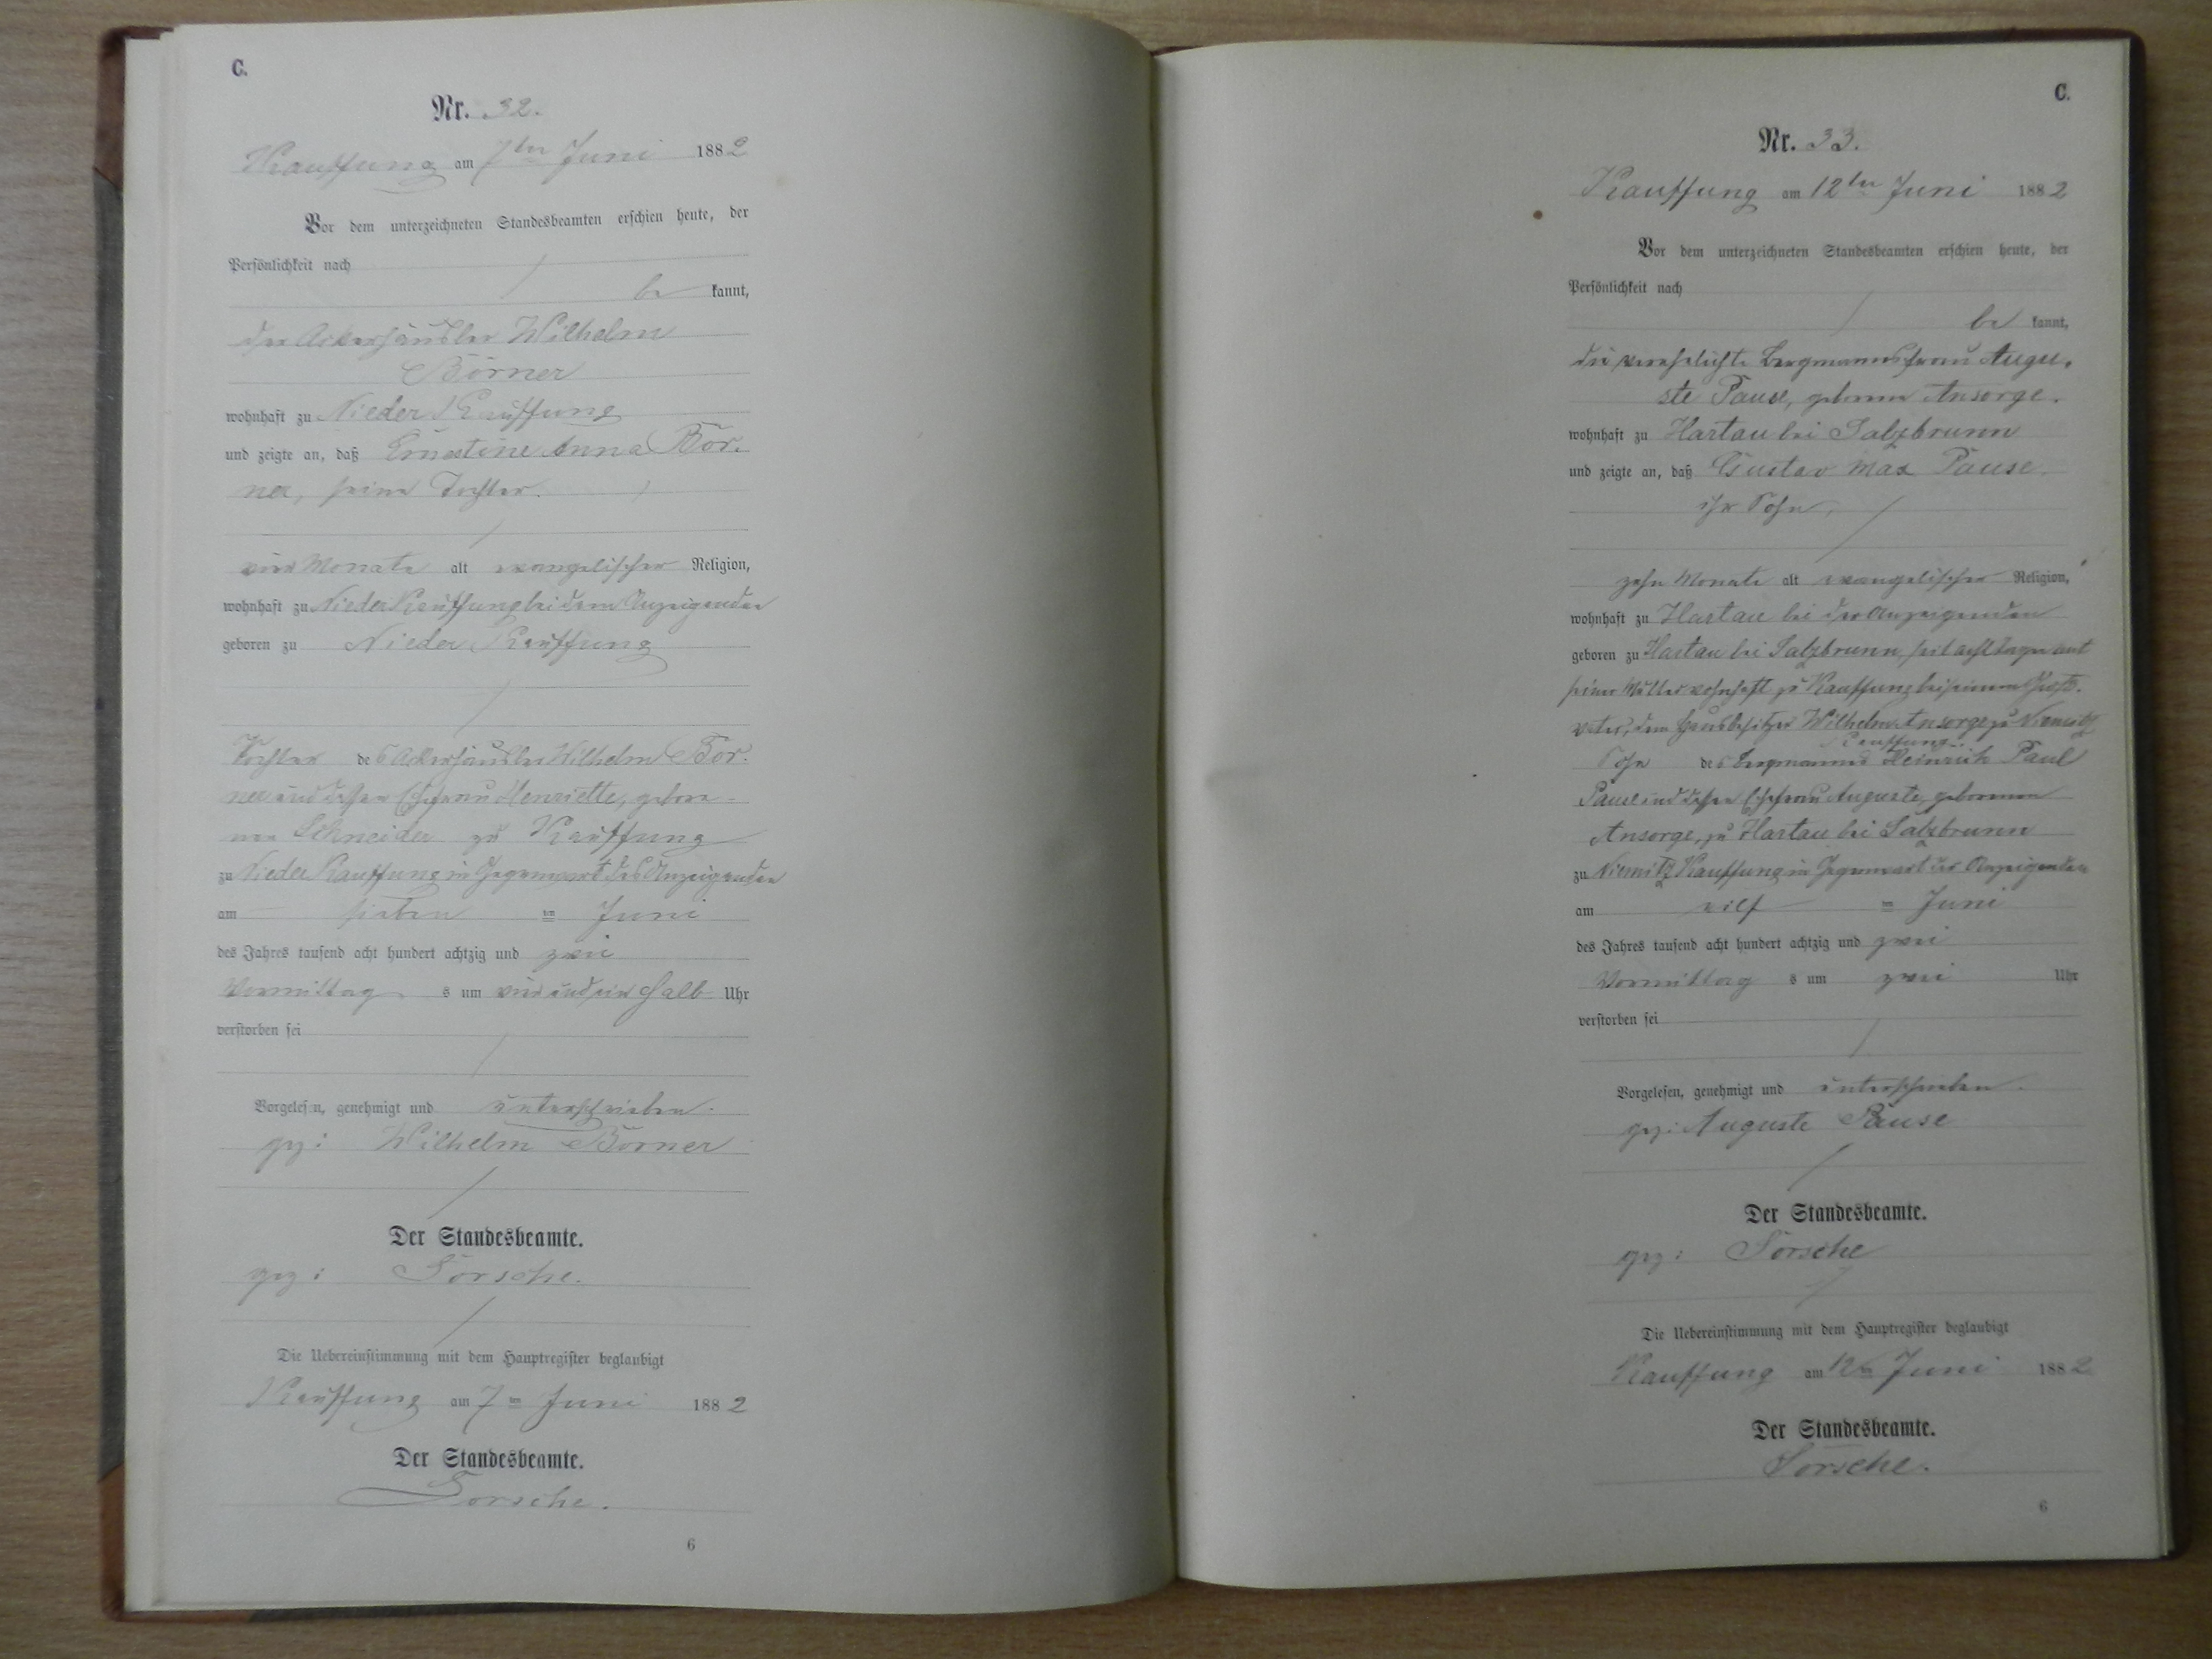 C.
Nr. 32.
Kauffung am 7ten Juni 1882
Vor dem unterzeichneten Standesbeamten erschien heute, der
Persönlichkeit nach
be kannt,
der Ackerhäusler Wilhelm
Börner
wohnhaft zu Nieder Kauffung
und zeigte an, daß Ernestine Anna Bör-
ner, seine Tochter.
vier Monate alt evangelischer Religion,
wohnhaft zu Nieder Kauffung bei dem Anzeigenden
geboren zu Nieder Kauffung
Tochter des Ackerhäusler Wilhelm Bör-
ner und dessen Ehefrau Henriette, gebore-
nen Schneider zu Kauffung
zu Nieder Kauffung in Gegenwart des Anzeigenden
am sieben ten Juni
des Jahres tausend acht hundert achtzig und zwei
Vormittag s um vier und ein halb Uhr
verstorben sei
Vorgelesen, genehmigt und unterschrieben.
gez: Wilhelm Börner
Der Standesbeamte.
gez: Sörsche.
Die Uebereinstimmung mit dem Hauptregister beglaubigt
Kauffung am 7ten Juni 1882
Der Standesbeamte.
Sörsche.
6
C.
Nr. 33.
Kauffung am 12ten Juni 1882
Vor dem unterzeichneten Standesbeamten erschien heute, der
Persönlichkeit nach
be kannt,
die verehelichte Bergmannsfrau Augu-
ste Pause, geborne Ansorge.
wohnhaft zu Hartau bei Salzbrunn
und zeigte an, daß Gustav Max Pause.
ihr Sohn,
zehn Monate alt evangelischer Religion,
wohnhaft zu Hartau bei der Anzeigenden
geboren zu Hartau bei Salzbrunn, seit acht Tagen mit
seiner Mutter wohnhaft zu Kauffung bei seinem Groß-
vater, dem Hausbesitzer Wilhelm Ansorge zu Niemitz
Kauffung.
Sohn des Bergmannes Heinrich Paul
Pause und dessen Ehefrau Auguste, geborenen
Ansorge, zu Hartau bei Salzbrunn
zu Niemitz Kauffung in Gegenwart der Anzeigenden
am eilf ten Juni
des Jahres tausend acht hundert achtzig und zwei
Vormittag s um zwei Uhr
verstorben sei
Vorgelesen, genehmigt und unterschrieben.
gez: Auguste Pause
Der Standesbeamte.
gez: Sörsche
Die Uebereinstimmung mit dem Hauptregister beglaubigt
Kauffung am 12ten Juni 1882
Der Standesbeamte.
Sörsche.
6